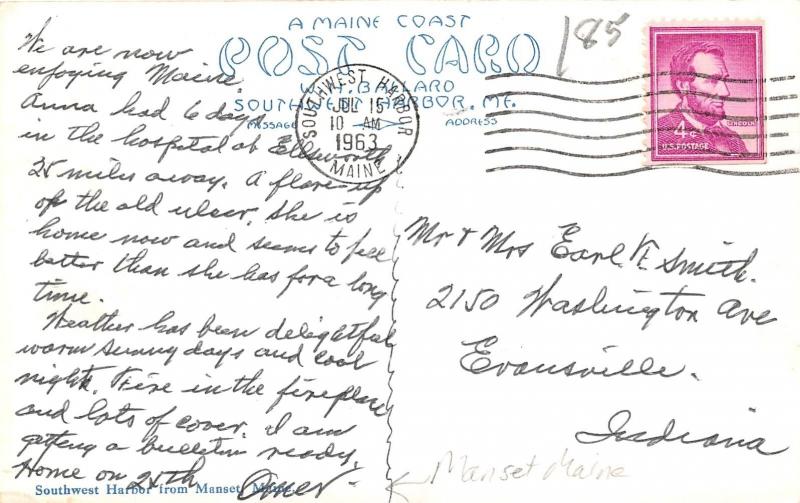 A MAINE COAST
POST CARD
W. F. BALLARD
SOUTHWEST HARBOR, ME.
MESSAGE
ADDRESS
185
SOUTHWEST HARBOR
JUL 15
10 AM
1963
MAINE
LINCOLN
4¢
U.S. POSTAGE
We are now
enjoying Maine.
Anna had 6 days
in the hospital at Ellsworth
25 miles away. A flare-up
of the old ulcer. She is
home now and seems to feel
better than she has for a long
time.
Weather has been delightful
warm sunny days and cool
nights. Fire in the fireplace
and lots of cover. I am
getting a bulletin ready.
Home on 25th Omer
Mr & Mrs Earl K. Smith.
2150 Washington Ave
Evansville.
Indiana
Manset Maine
Southwest Harbor from Manset, Maine